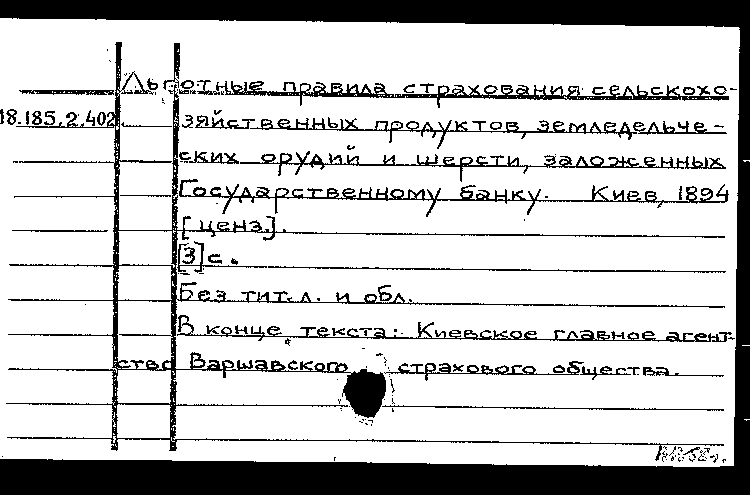 Льготные правила страхования сельскохо-
18.185.2.402 зяйственных продуктов, земледельче-
ских орудий и шерсти, заложенных
Государственному банку. Киев, 1894
[ценз.].
[3]с.
Без тит.л. и обл.
В конце текста: Киевское главное агент-
ство Варшавского страхового общества.